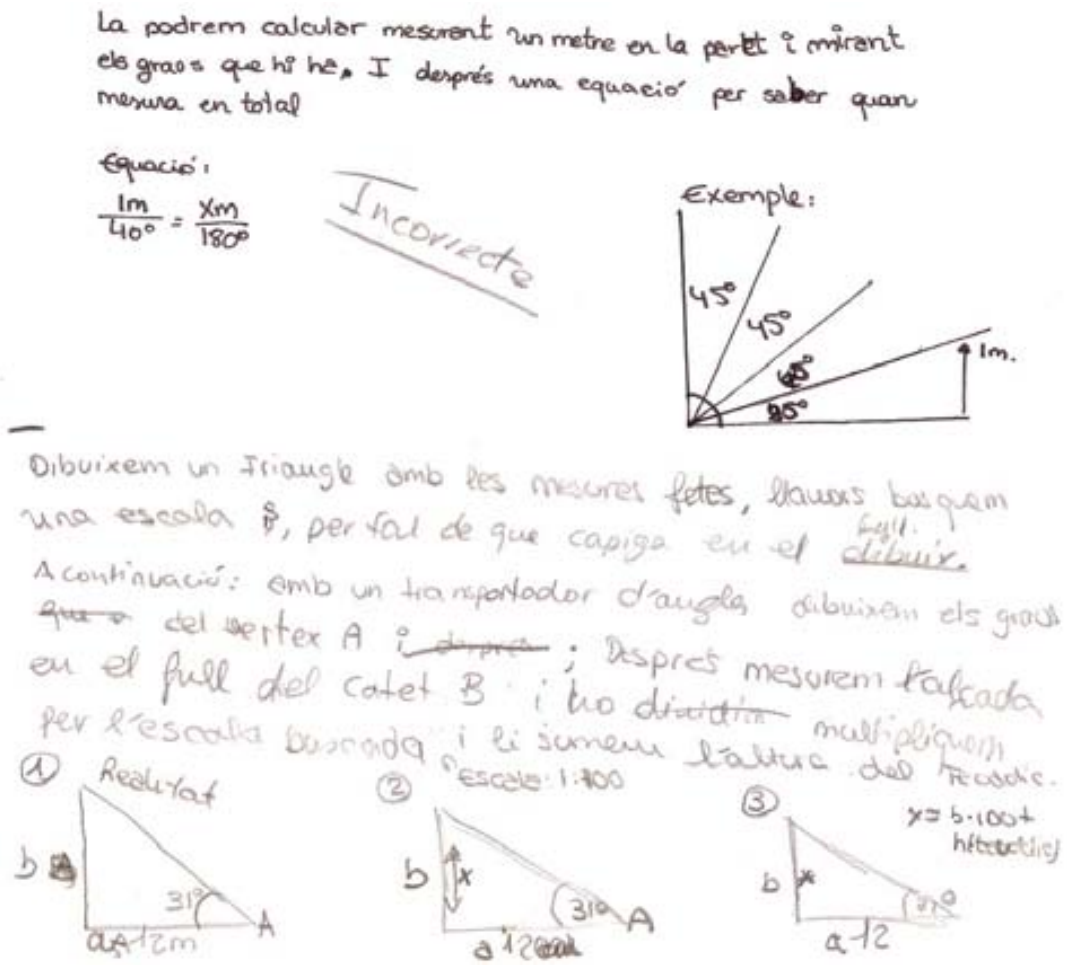 La podrem calcular mesurant un metre en la paret i mirant
els graos que hi ha. I després una equació per saber quan
mesura en total
Equació:
1m/40° = Xm/180°
Incorrecte
Exemple:
45°
45°
1m.
Dibuixem un Triangle amb les mesures fetes, llavors busquem
una escala, per tal de que capiga en el dibuix.
A continuació: amb un transportador d'angles dibuixem els graus
del vertex A i ; Després mesurem l'alçada
en el full del catet B i ho dividim multipliquem
per l'escala buscada i li sumem l'altura del
1 Realitat
b
31°
A
12m
2 Escala: 1:100
b
x
31°
A
a 12
3
x = b·100+
b
x
a 12